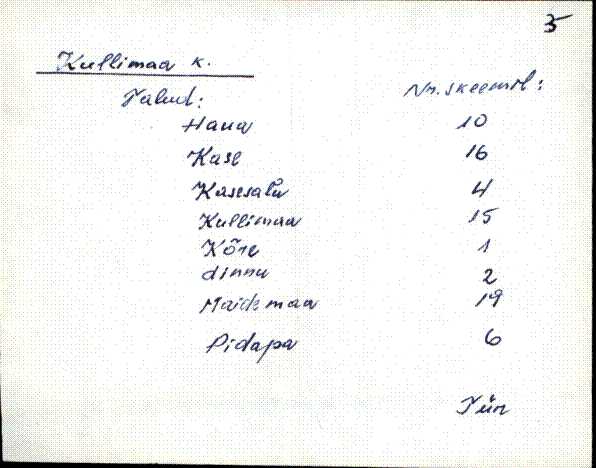 3
Kullimaa k.
Talud: Nr. skeemil:
Hana 10
Kase 16
Kasssalu 4
Kullimaa 15
Kõre 1
Linnu 2
Maidsmaa 19
Pidapa 6
Tür